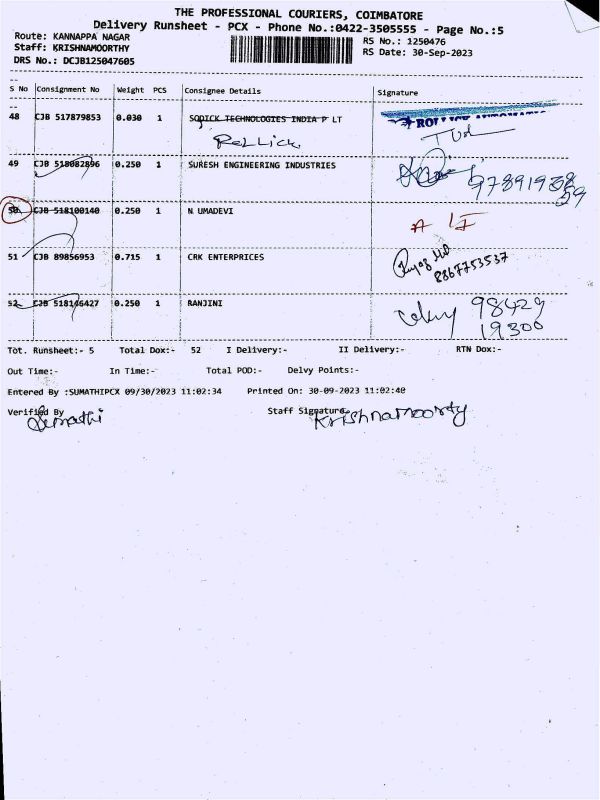 THE PROFESSIONAL COURIERS, COIMBATORE
Delivery Runsheet - PCX - Phone No.:0422-3505555 - Page No.:5
Route: KANNAPPA NAGAR
RS No.: 1250476
Staff: KRISHNAMOORTHY
RS Date: 30-Sep-2023
DRS No.: DCJB125047605
S No Consignment No Weight PCS Consignee Details Signature
48 CJB 517879853 0.030 1 SODICK TECHNOLOGIES INDIA P LT
49 CJB 518082896 0.250 1 SURESH ENGINEERING INDUSTRIES
50 CJB 518100140 0.250 1 N UMADEVI
51 CJB 89856953 0.715 1 CRK ENTERPRICES
8867753537
52 CJB 518146427 0.250 1 RANJINI
98429
19300
Tot. Runsheet:- 5 Total Dox:- 52 I Delivery:- II Delivery:- RTN Dox:-
Out Time:- In Time:- Total POD:- Delvy Points:-
Entered By :SUMATHIPCX 09/30/2023 11:02:34 Printed On: 30-09-2023 11:02:40
Verified By Staff Signature
Sumathi Krishnamoorty